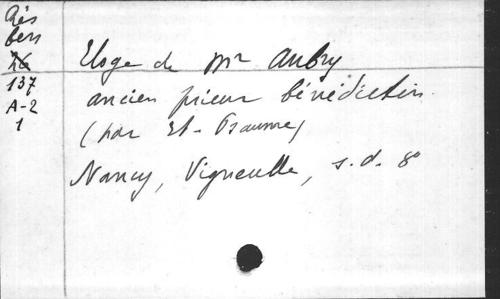 Rés
bers
26
137
A-2
1
Eloge de Mr Aubry
ancien prieur bénédictin.
(par Et. Psaume)
Nancy, Vigneulle, s.d. 8º